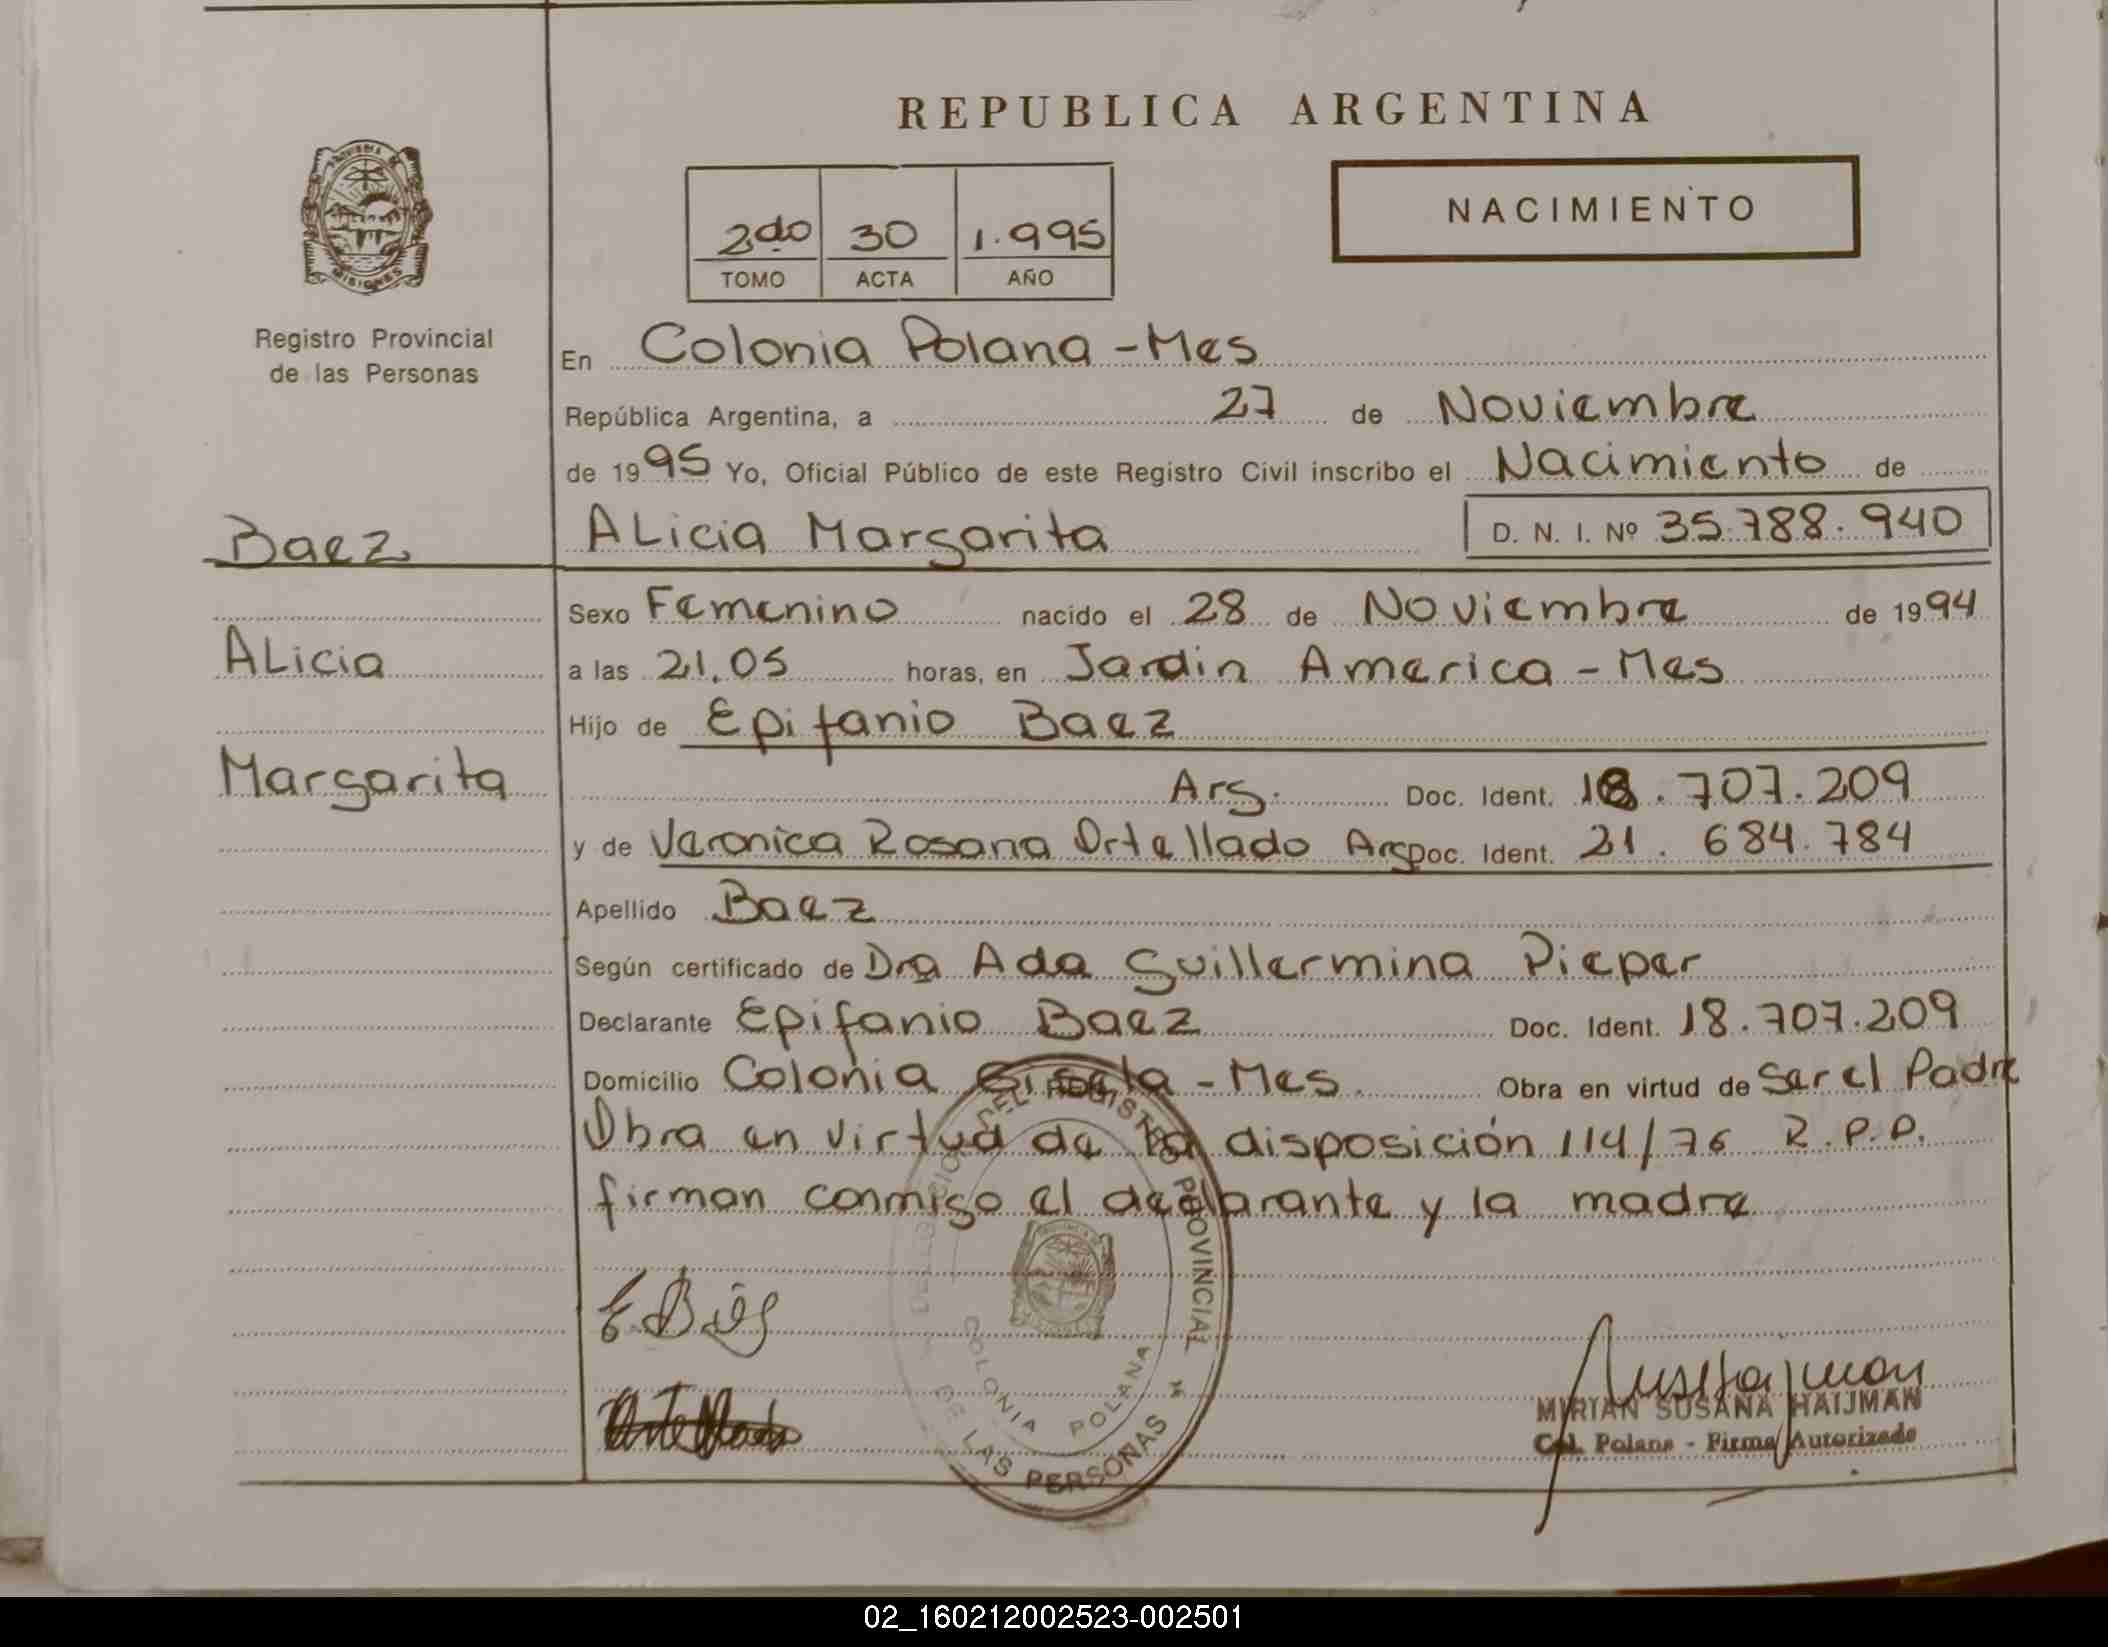 REPUBLICA ARGENTINA
NACIMIENTO
2do 30 1.995
TOMO ACTA AÑO
PROVINCIA DE
MISIONES
Registro Provincial
de las Personas
En Colonia Polana - Mes
República Argentina, a 27 de Noviembre
de 1995 Yo, Oficial Público de este Registro Civil inscribo el Nacimiento de
Baez
ALicia Margarita D. N. I. Nº 35.788.940
Sexo Femenino nacido el 28 de Noviembre de 1994
ALicia
a las 21.05 horas, en Jardin America - Mes
Hijo de Epifanio Baez
Margarita
Arg. Doc. Ident. 18.707.209
y de Veronica Rosana Ortellado Arg Doc. Ident. 21.684.784
Apellido Baez
Según certificado de Dra Ada Guillermina Pieper
Declarante Epifanio Baez Doc. Ident. 18.707.209
Domicilio Colonia Gisela - Mes. Obra en virtud de Ser el Padre
Obra en virtud de la disposición 114/76 R.P.P.
firman conmigo el declarante y la madre
DEL REGISTRO PROVINCIAL
DE LAS PERSONAS
COLONIA POLANA
MIRIAN SUSANA HAIJMAN
Col. Polana - Firma Autorizada
02_160212002523-002501